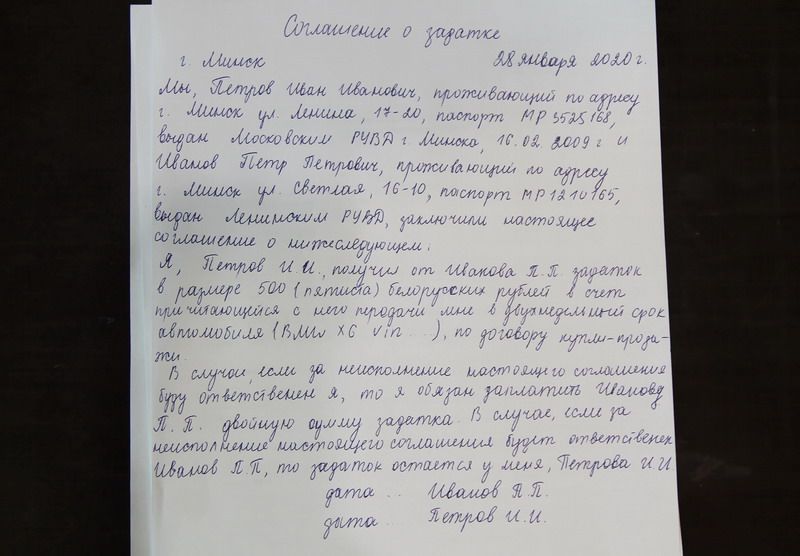 Соглашение о задатке
г. Минск 28 января 2020 г.
Мы, Петров Иван Иванович, проживающий по адресу
г. Минск ул. Ленина, 17-20, паспорт МР 3525168,
выдан Московским РУВД г. Минска, 16.02.2009 г и
Иванов Петр Петрович, проживающий по адресу
г. Минск ул. Светлая, 16-10, паспорт МР1210165,
выдан Ленинским РУВД, заключили настоящее
соглашение о нижеследующем:
Я, Петров И.И., получил от Иванова П.П. задаток
в размере 500 (пятиста) белорусских рублей в счет
причитающейся с него передачи мне в двухнедельный срок
автомобиля (BMW X6 Vin ....), по договору купли-прода-
жи.
В случае, если за неисполнение настоящего соглашения
буду ответственен я, то я обязан заплатить Иванову
П.П. двойную сумму задатка. В случае, если за
неисполнение настоящего соглашения будет ответственен
Иванов П.П, то задаток остается у меня, Петрова И.И.
дата ... Иванов П.П.
дата ... Петров И.И.